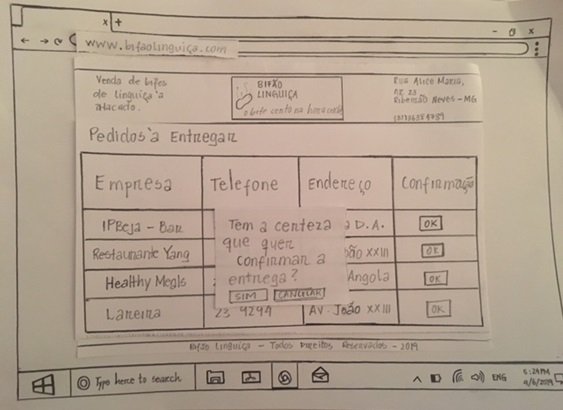 x +
- o x
www.bifaolinguiça.com
Venda de bifes
de linguiça à
atacado.
BIFÃO
LINGUIÇA
o bife certo na hora certa
Rua Alice Maria,
Nº 23
Ribeirão Neves - MG
Pedidos à Entregar
Empresa Telefone Endereço Confirmação
IPBeja - Bar D. A. OK
Restaurante Yang XXIII OK
Healthy Megls Angola OK
Lareira 23 9294 AV. João XXIII OK
Tem a certeza
que quer
confirmar a
entrega?
SIM CANCELAR
Bifão Linguiça - Todos Direitos Reservados - 2019
Type here to search
ENG